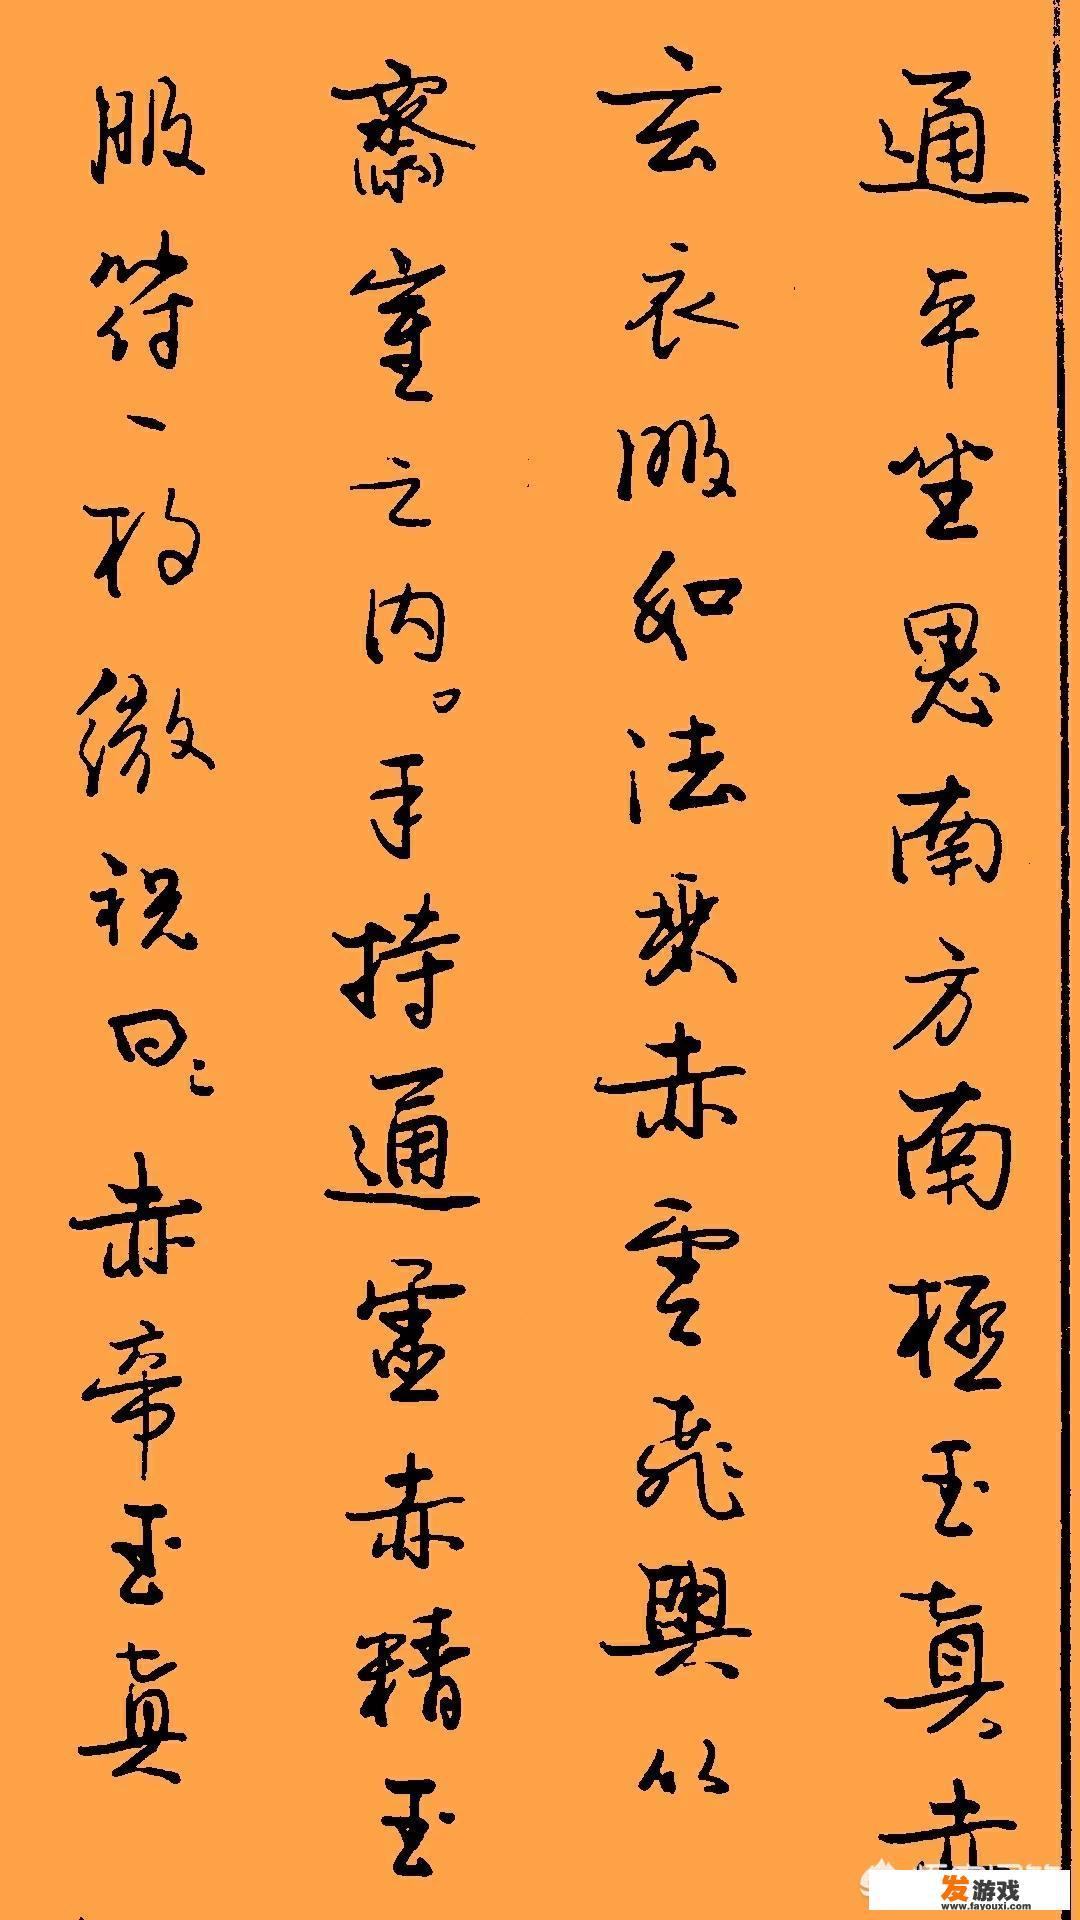 通平坐思南方南极玉真、赤
玄衣服如法乘赤雲飛輿從
齋室之内。手持通靈赤精玉
服符一枚微祝曰：赤帝玉真
发游戏
www.fayouxi.com